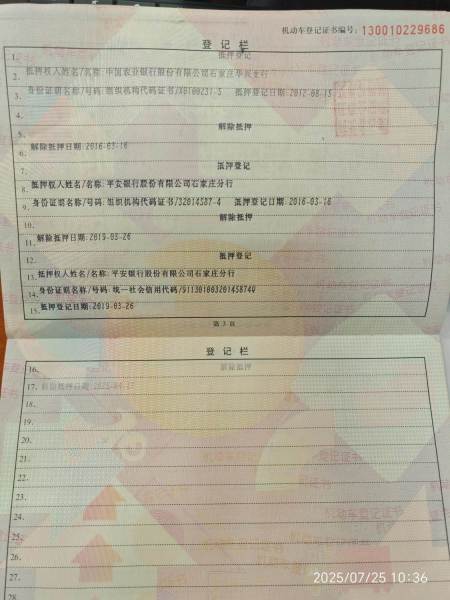 机动车登记证书编号：130010229686
登记栏
1. 抵押登记
2. 抵押权人姓名/名称:中国农业银行股份有限公司石家庄华辰支行
3. 身份证明名称/号码:组织机构代码证书/X0100231-5 抵押登记日期:2012-08-15
4.
5. 解除抵押
6. 解除抵押日期:2016-03-16
7. 抵押登记
8. 抵押权人姓名/名称:平安银行股份有限公司石家庄分行
9. 身份证明名称/号码:组织机构代码证书/32014587-4 抵押登记日期:2016-03-16
10. 解除抵押
11. 解除抵押日期:2019-03-26
12. 抵押登记
13. 抵押权人姓名/名称:平安银行股份有限公司石家庄分行
14. 身份证明名称/号码:统一社会信用代码/91130100320145874Q
15. 抵押登记日期:2019-03-26
第3页
登记栏
16. 解除抵押
17. 解除抵押日期:2025-04-15
18.
19.
20.
21.
22.
23.
24.
25.
26.
27.
28.
2025/07/25 10:36